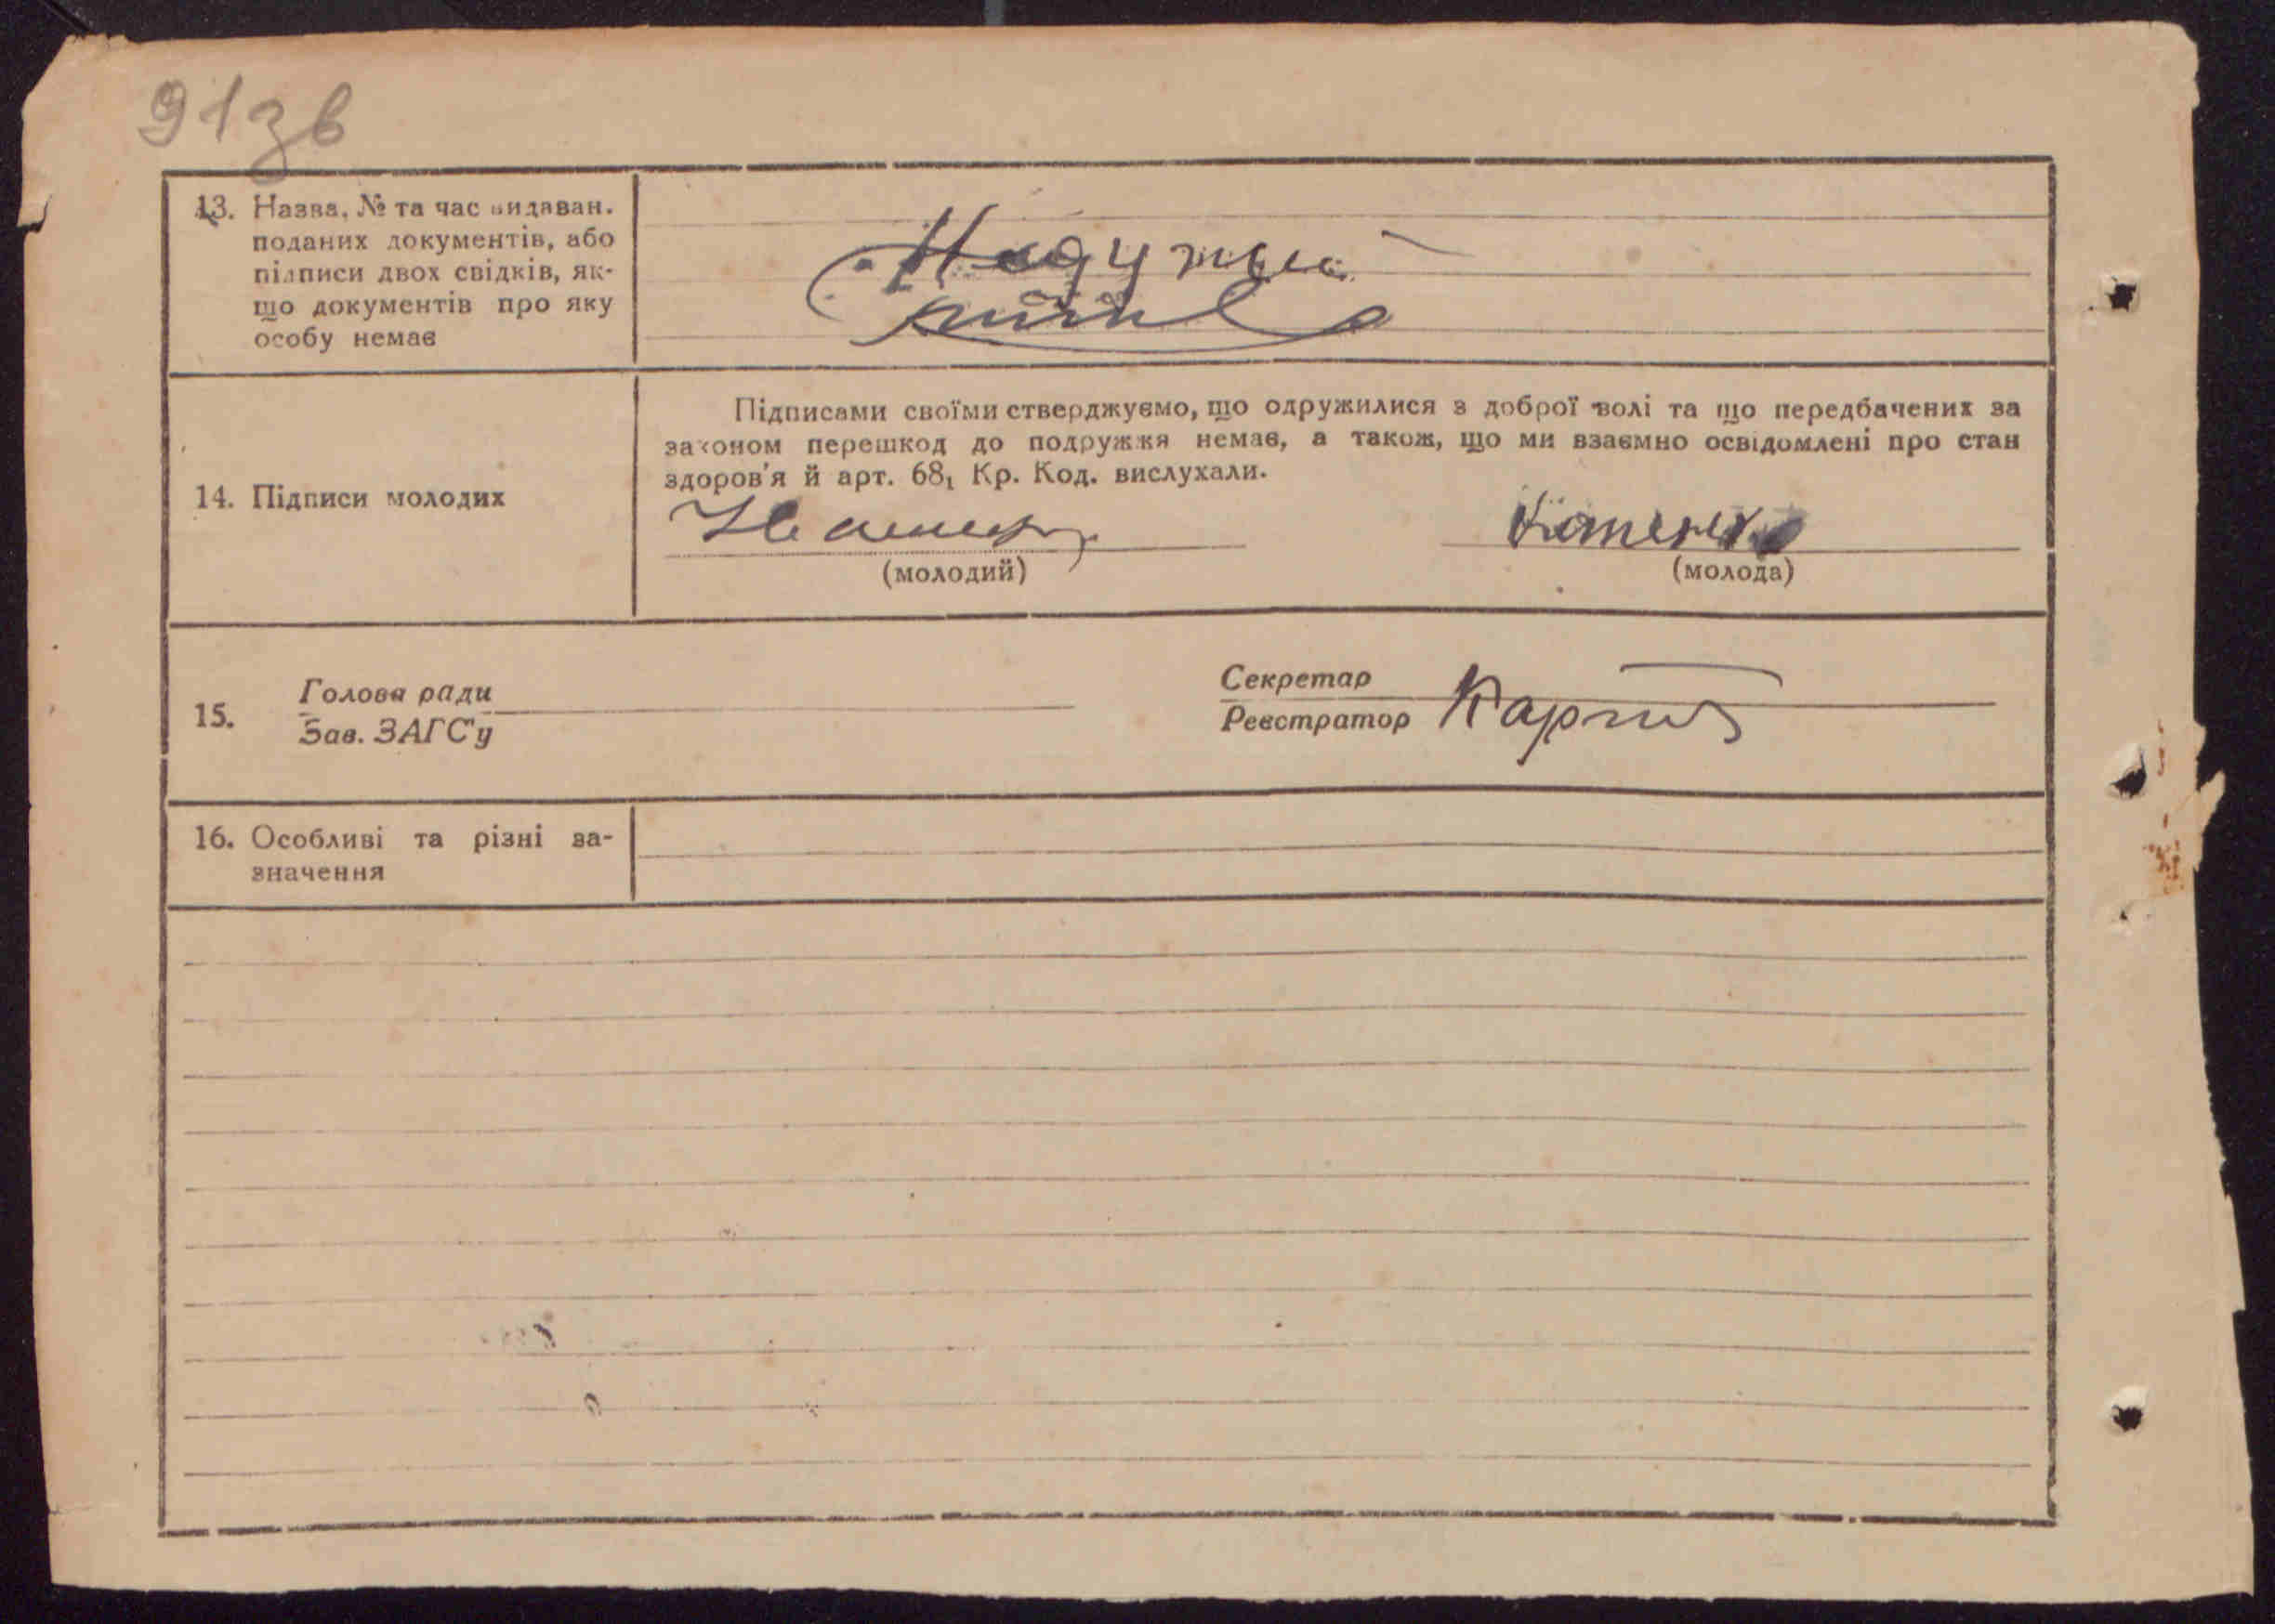 91зв
13. Назва, № та час видаван.
поданих документів, або
підписи двох свідків, як-
що документів про яку
особу немає
Підписами своїми стверджуємо, що одружилися з доброї волі та що передбачених за
законом перешкод до подружжя немає, а також, що ми взаємно освідомлені про стан
здоров'я й арт. 68₁ Кр. Код. вислухали.
14. Підписи молодих
(молодий)
(молода)
15.
Голова ради
Зав. ЗАГС'у
Секретар
Реєстратор
16. Особливі та різні за-
значення